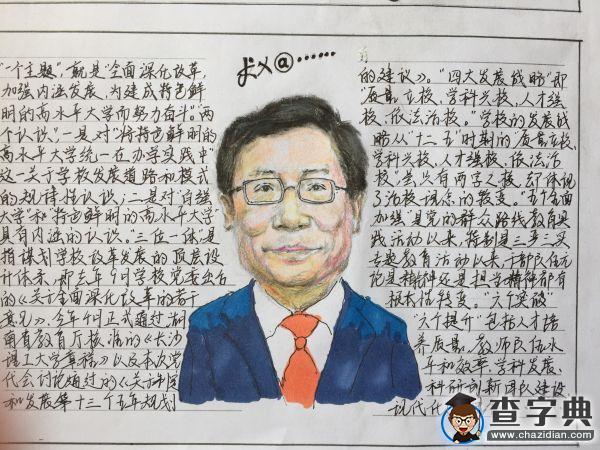 "一个主题",就是"全面深化改革,
加强内涵发展,为建成特色鲜
明的高水平大学而努力奋斗"。"两
个认识",一是对"将特色鲜明的
高水平大学统一在办学实践中"
这一关于学校发展道路和模式
的规律性认识;二是对"百强
大学"和"特色鲜明的高水平大学"
具有内涵的认识。"三位一体"是
指谋划学校改革发展的顶层设
计体系,即去年9月学校党委出台
的《关于全面深化改革的若干
意见》、今年4月正式通过、湖
南省教育厅核准的《长沙
理工大学章程》以及本次党
代会讨论通过的《关于制定
和发展第十三个五年规划
的建议》。"四大发展战略"即
"质量立校、学科兴校、人才强
校、依法治校。"学校的发展战
略从"十二五"时期的"质量立校、
学科兴校、人才强校、依法治
校"虽只有两字之校,却体现
了治校理念的转变。"五个全面
加强"是党的群众路线教育实
践活动以来,特别是三严三实
专题教育活动以来,干部队伍无
论是精神还是担当精神都有
根本性转变。"六个突破"
"六个提升"包括人才培
养质量、教师队伍水
平和效率、学科发展、
科研创新团队建设、
现代化
查字典
www.chazidian.com